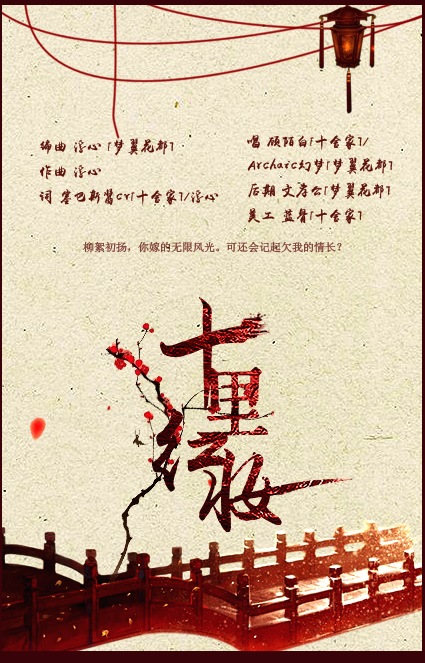 编曲 浮心「梦翼花都」
作曲 浮心
词 塔巴斯酱cr「十全家」/浮心
唱 颀陌白「十全家」/
Archaic幻梦「梦翼花都」
后期 文彦公「梦翼花都」
美工 蓝督「十全家」
柳絮初扬，你嫁的无限风光。可还会记起欠我的情长？
十里红妆